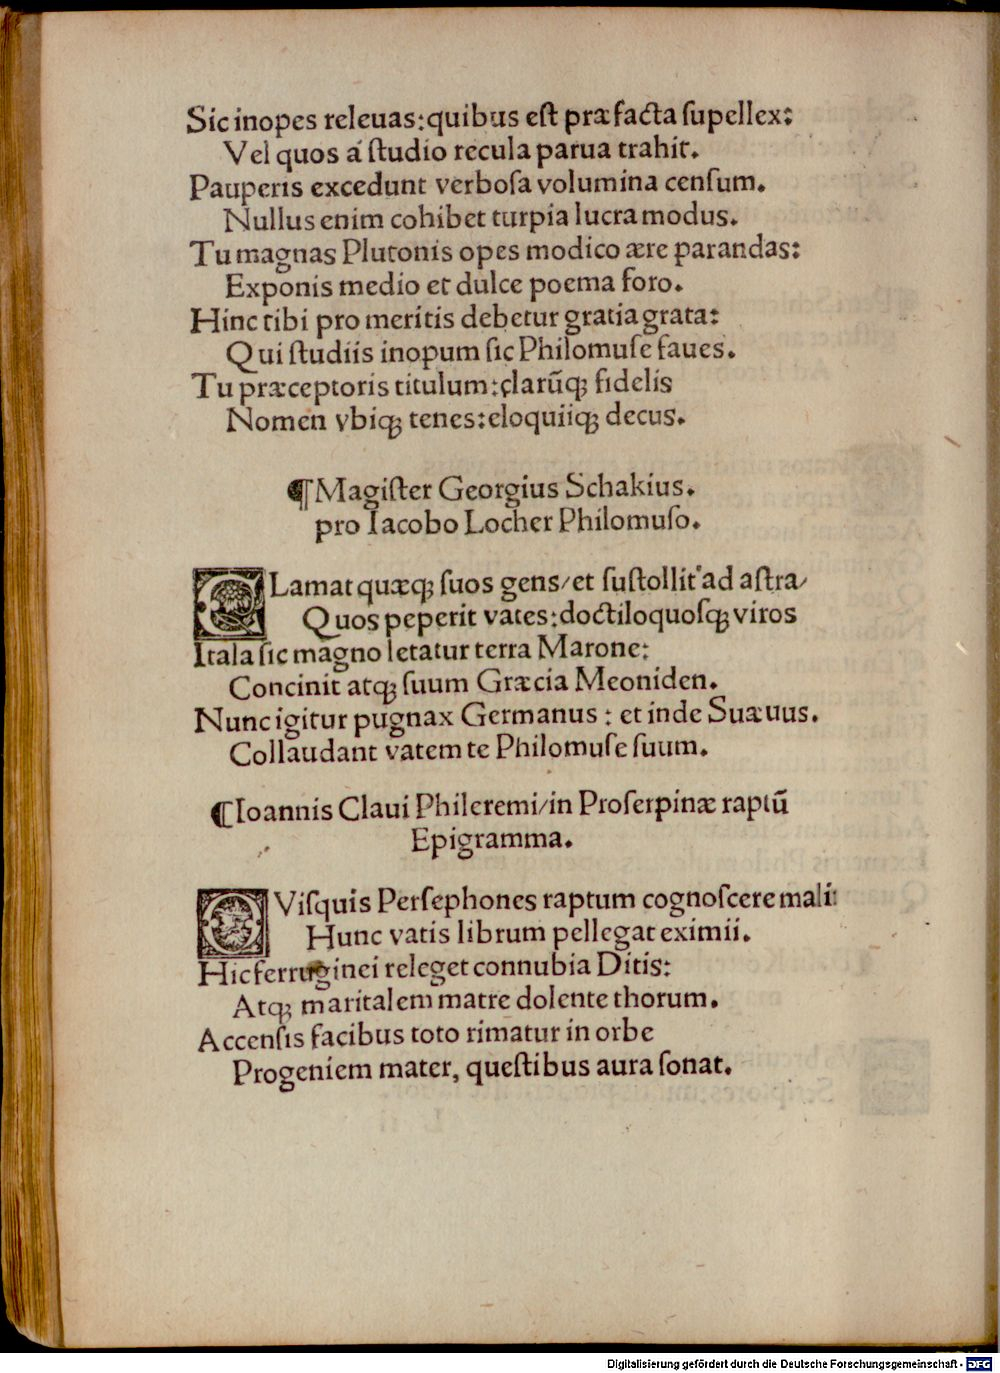 Sic inopes releuas: quibus eſt præfacta ſupellex:
Vel quos a ſtudio recula parua trahit.
Pauperis excedunt verboſa volumina cenſum.
Nullus enim cohibet turpia lucra modus.
Tu magnas Plutonis opes modico ære parandas:
Exponis medio et dulce poema foro.
Hinc tibi pro meritis debetur gratia grata:
Qui ſtudiis inopum ſic Philomuſe faues.
Tu præceptoris titulum: clarūqꝫ fidelis
Nomen vbiqꝫ tenes: eloquiiqꝫ decus.
¶ Magiſter Georgius Schakius.
pro Iacobo Locher Philomuſo.
CLamat quæqꝫ ſuos gens/ et ſuſtollit ad aſtra/
Quos peperit vates: doctiloquoſqꝫ viros
Itala ſic magno letatur terra Marone:
Concinit atqꝫ ſuum Græcia Meoniden.
Nunc igitur pugnax Germanus: et inde Suæuus.
Collaudant vatem te Philomuſe ſuum.
¶ Ioannis Claui Phileremi/ in Proſerpinæ raptū
Epigramma.
QViſquis Perſephones raptum cognoſcere mali:
Hunc vatis librum pellegat eximii.
Hic ferruginei releget connubia Ditis:
Atqꝫ maritalem matre dolente thorum.
Accenſis facibus toto rimatur in orbe
Progeniem mater, queſtibus aura ſonat.
Digitalisierung gefördert durch die Deutsche Forschungsgemeinschaft - DFG